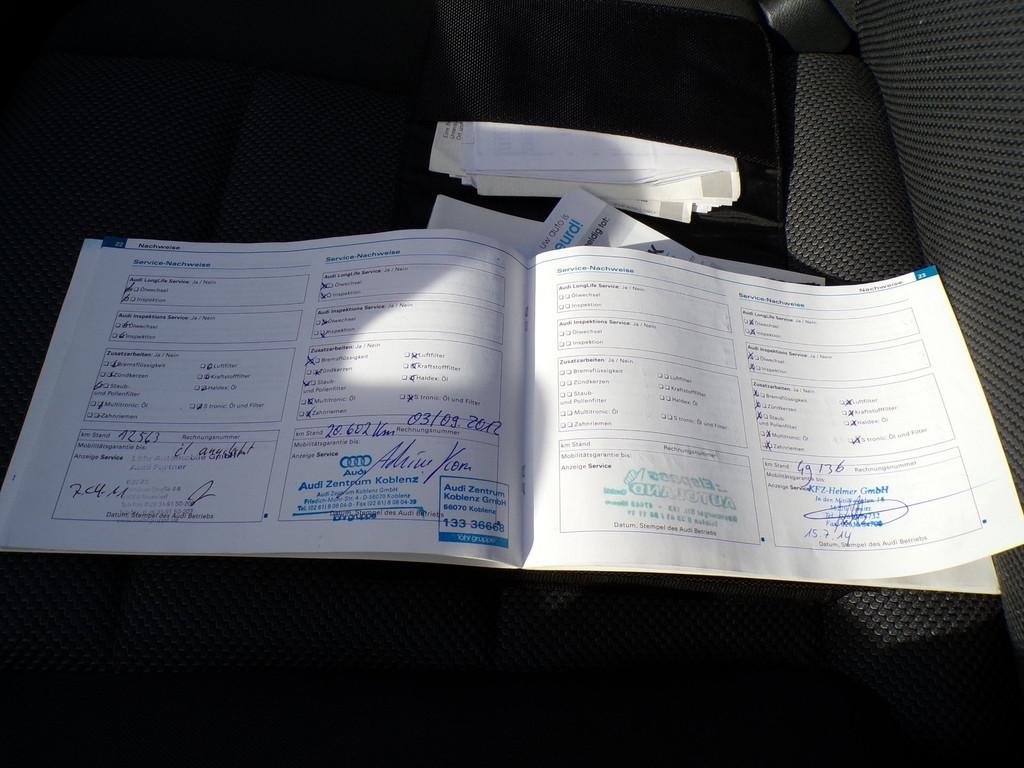 uw auto is
22 Nachweise
Service-Nachweise
Audi LongLife Service: Ja / Nein
Ölwechsel
Inspektion
Audi Inspektions Service: Ja / Nein
Ölwechsel
Inspektion
Zusatzarbeiten: Ja / Nein
Bremsflüssigkeit
Zündkerzen
Staub-
und Pollenfilter
Multitronic: Öl
Zahnriemen
Luftfilter
Kraftstofffilter
Haldex: Öl
S tronic: Öl und Filter
km Stand 12563 Rechnungsnummer
Mobilitätsgarantie bis:
Anzeige Service
Audi Partner
Datum, Stempel des Audi Betriebs
Service-Nachweise
Audi LongLife Service: Ja / Nein
Ölwechsel
Inspektion
Audi Inspektions Service: Ja / Nein
Ölwechsel
Inspektion
Zusatzarbeiten: Ja / Nein
Bremsflüssigkeit
Zündkerzen
Staub-
und Pollenfilter
Multitronic: Öl
Zahnriemen
Luftfilter
Kraftstofffilter
Haldex: Öl
S tronic: Öl und Filter
03/09.2012
km Stand 20 602 Km Rechnungsnummer
Mobilitätsgarantie bis:
Anzeige Service
Audi
Audi Zentrum Koblenz
Audi Zentrum Koblenz GmbH
Friedrich-Mohr-Str. 4 · D-56070 Koblenz
löhrgruppe
Datum, Stempel des Audi Betriebs
Audi Zentrum
Koblenz GmbH
56070 Koblenz
133 36668
löhrgruppe
Nachweise 23
Service-Nachweise
Audi LongLife Service: Ja / Nein
Ölwechsel
Inspektion
Audi Inspektions Service: Ja / Nein
Ölwechsel
Inspektion
Zusatzarbeiten: Ja / Nein
Bremsflüssigkeit
Zündkerzen
Staub-
und Pollenfilter
Multitronic: Öl
Zahnriemen
Luftfilter
Kraftstofffilter
Haldex: Öl
S tronic: Öl und Filter
km Stand Rechnungsnummer
Mobilitätsgarantie bis:
Anzeige Service
Datum, Stempel des Audi Betriebs
Service-Nachweise
Audi LongLife Service: Ja / Nein
Ölwechsel
Inspektion
Audi Inspektions Service: Ja / Nein
Ölwechsel
Inspektion
Zusatzarbeiten: Ja / Nein
Bremsflüssigkeit
Zündkerzen
Staub-
und Pollenfilter
Multitronic: Öl
Zahnriemen
Luftfilter
Kraftstofffilter
Haldex: Öl
S tronic: Öl und Filter
km Stand 49 136 Rechnungsnummer
Mobilitätsgarantie bis:
Anzeige Service
KFZ-Helmer GmbH
15.7.14
Datum, Stempel des Audi Betriebs